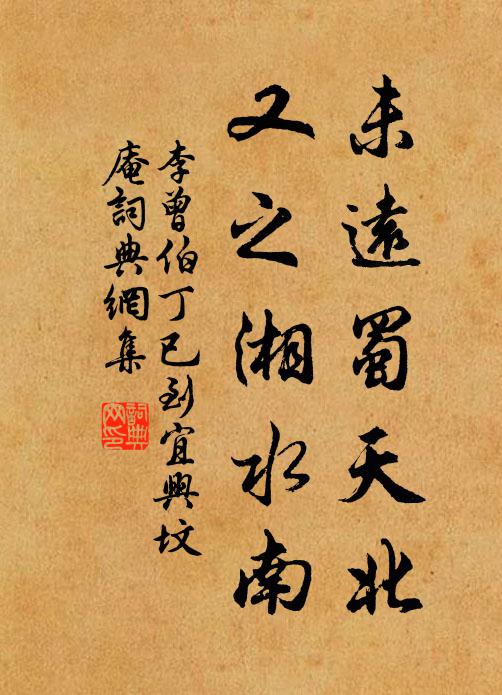 未遠蜀天北
又之湘水南
李曾伯丁巳到宜興坟
庵詞典網集
詞典
网印